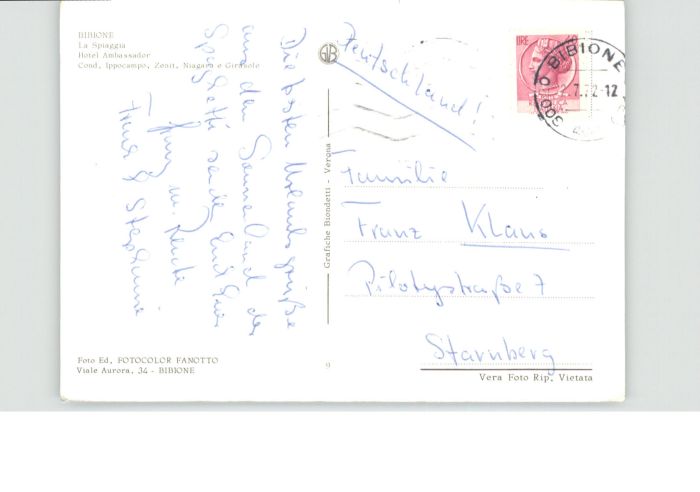 BIBIONE
La Spiaggia
Hotel Ambassador
Cond. Ippocampo, Zenit, Niagara e Girasole
Die besten Urlaubsgrüße
aus dem Sonnenland der
Spaghetti senden Emil
Franz & Stephanie
Foto Ed. FOTOCOLOR FANOTTO
Viale Aurora, 34 - BIBIONE
Grafiche Biondetti - Verona
9
Deutschland!
LIRE
BIBIONE
Familie
Franz Klaus
Pilotystraße 7
Starnberg
Vera Foto Rip. Vietata